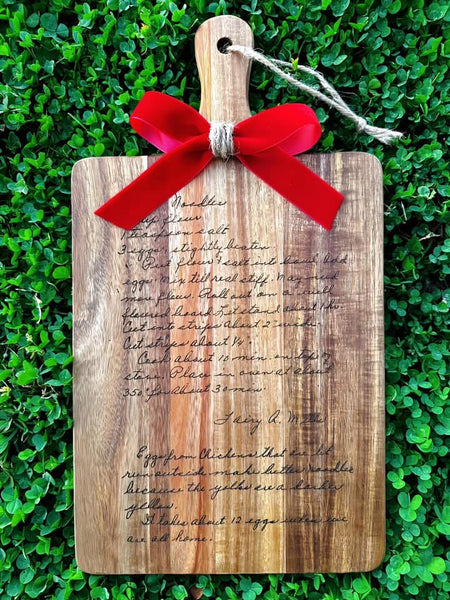 Noodles
flour
teaspoon salt
3 eggs, slightly beaten
Put flour & salt into bowl add
eggs. Mix til real stiff. May need
more flour. Roll out on a well
floured board, let stand about 1 hr.
Cut into strips about 2" wide.
Cut strips about 1/4".
Cook about 10 min. on top of
stove. Place in oven at about
350° for about 30 min
Fairy A.
Eggs from chickens that are let
run outside make better noodles
because the yolks are a darker
yellow.
It takes about 12 eggs when we
are all home.